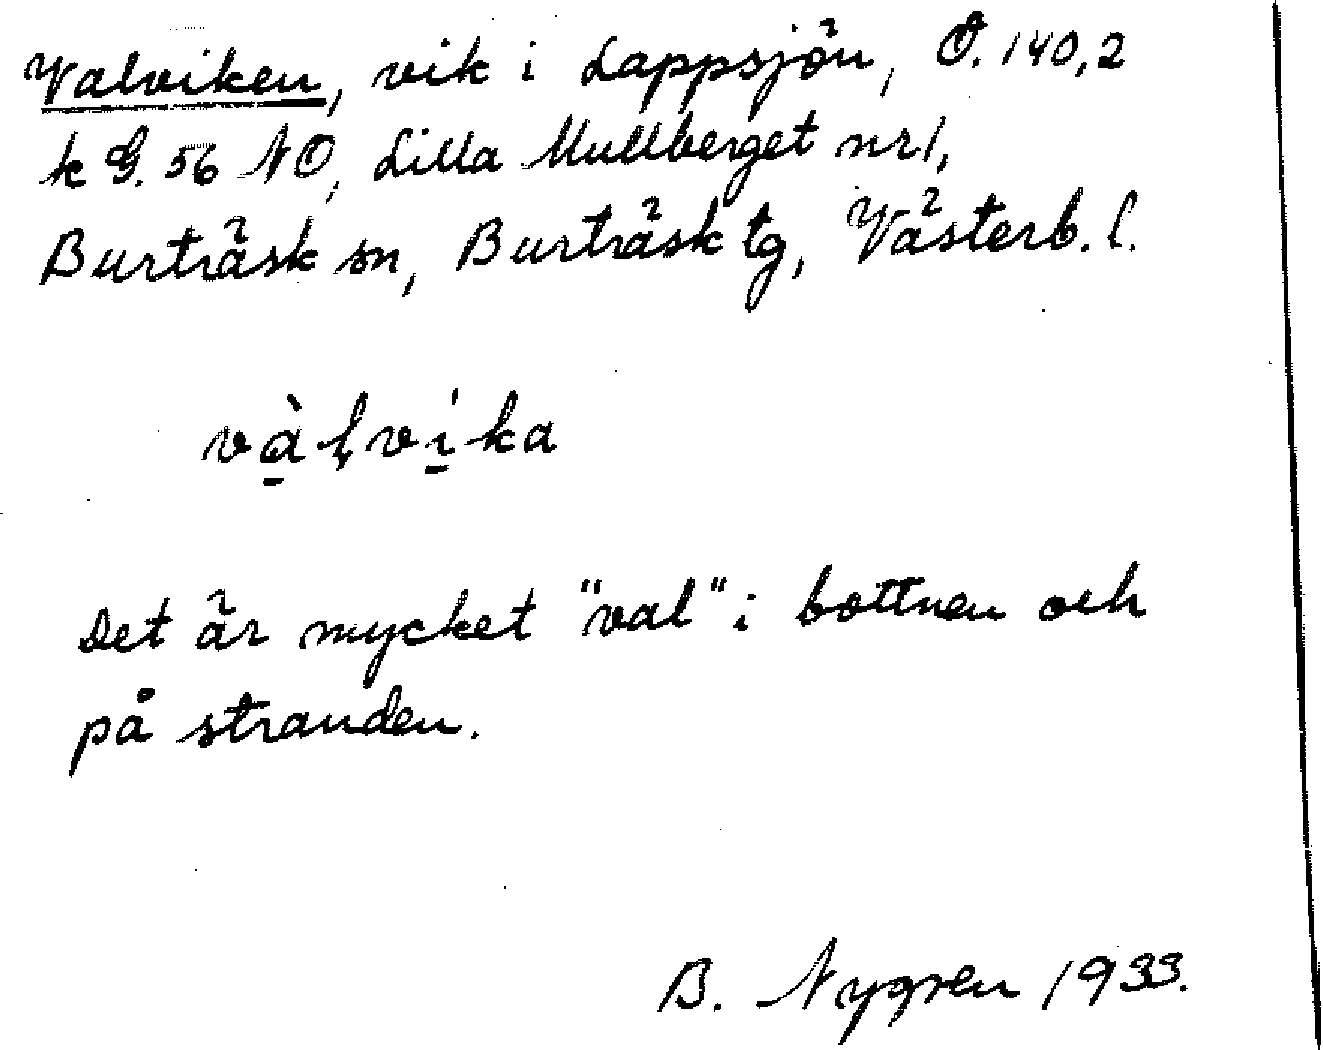 Valviken, vik i Lappsjön, Ö. 140,2
k G. 56 NO, Lilla Mullberget nr1,
Burträsk sn, Burträsk tg, Västerb. l.
vàḷvika
Det är mycket "val" i bottnen och
på stranden.
B. Nygren 1933.